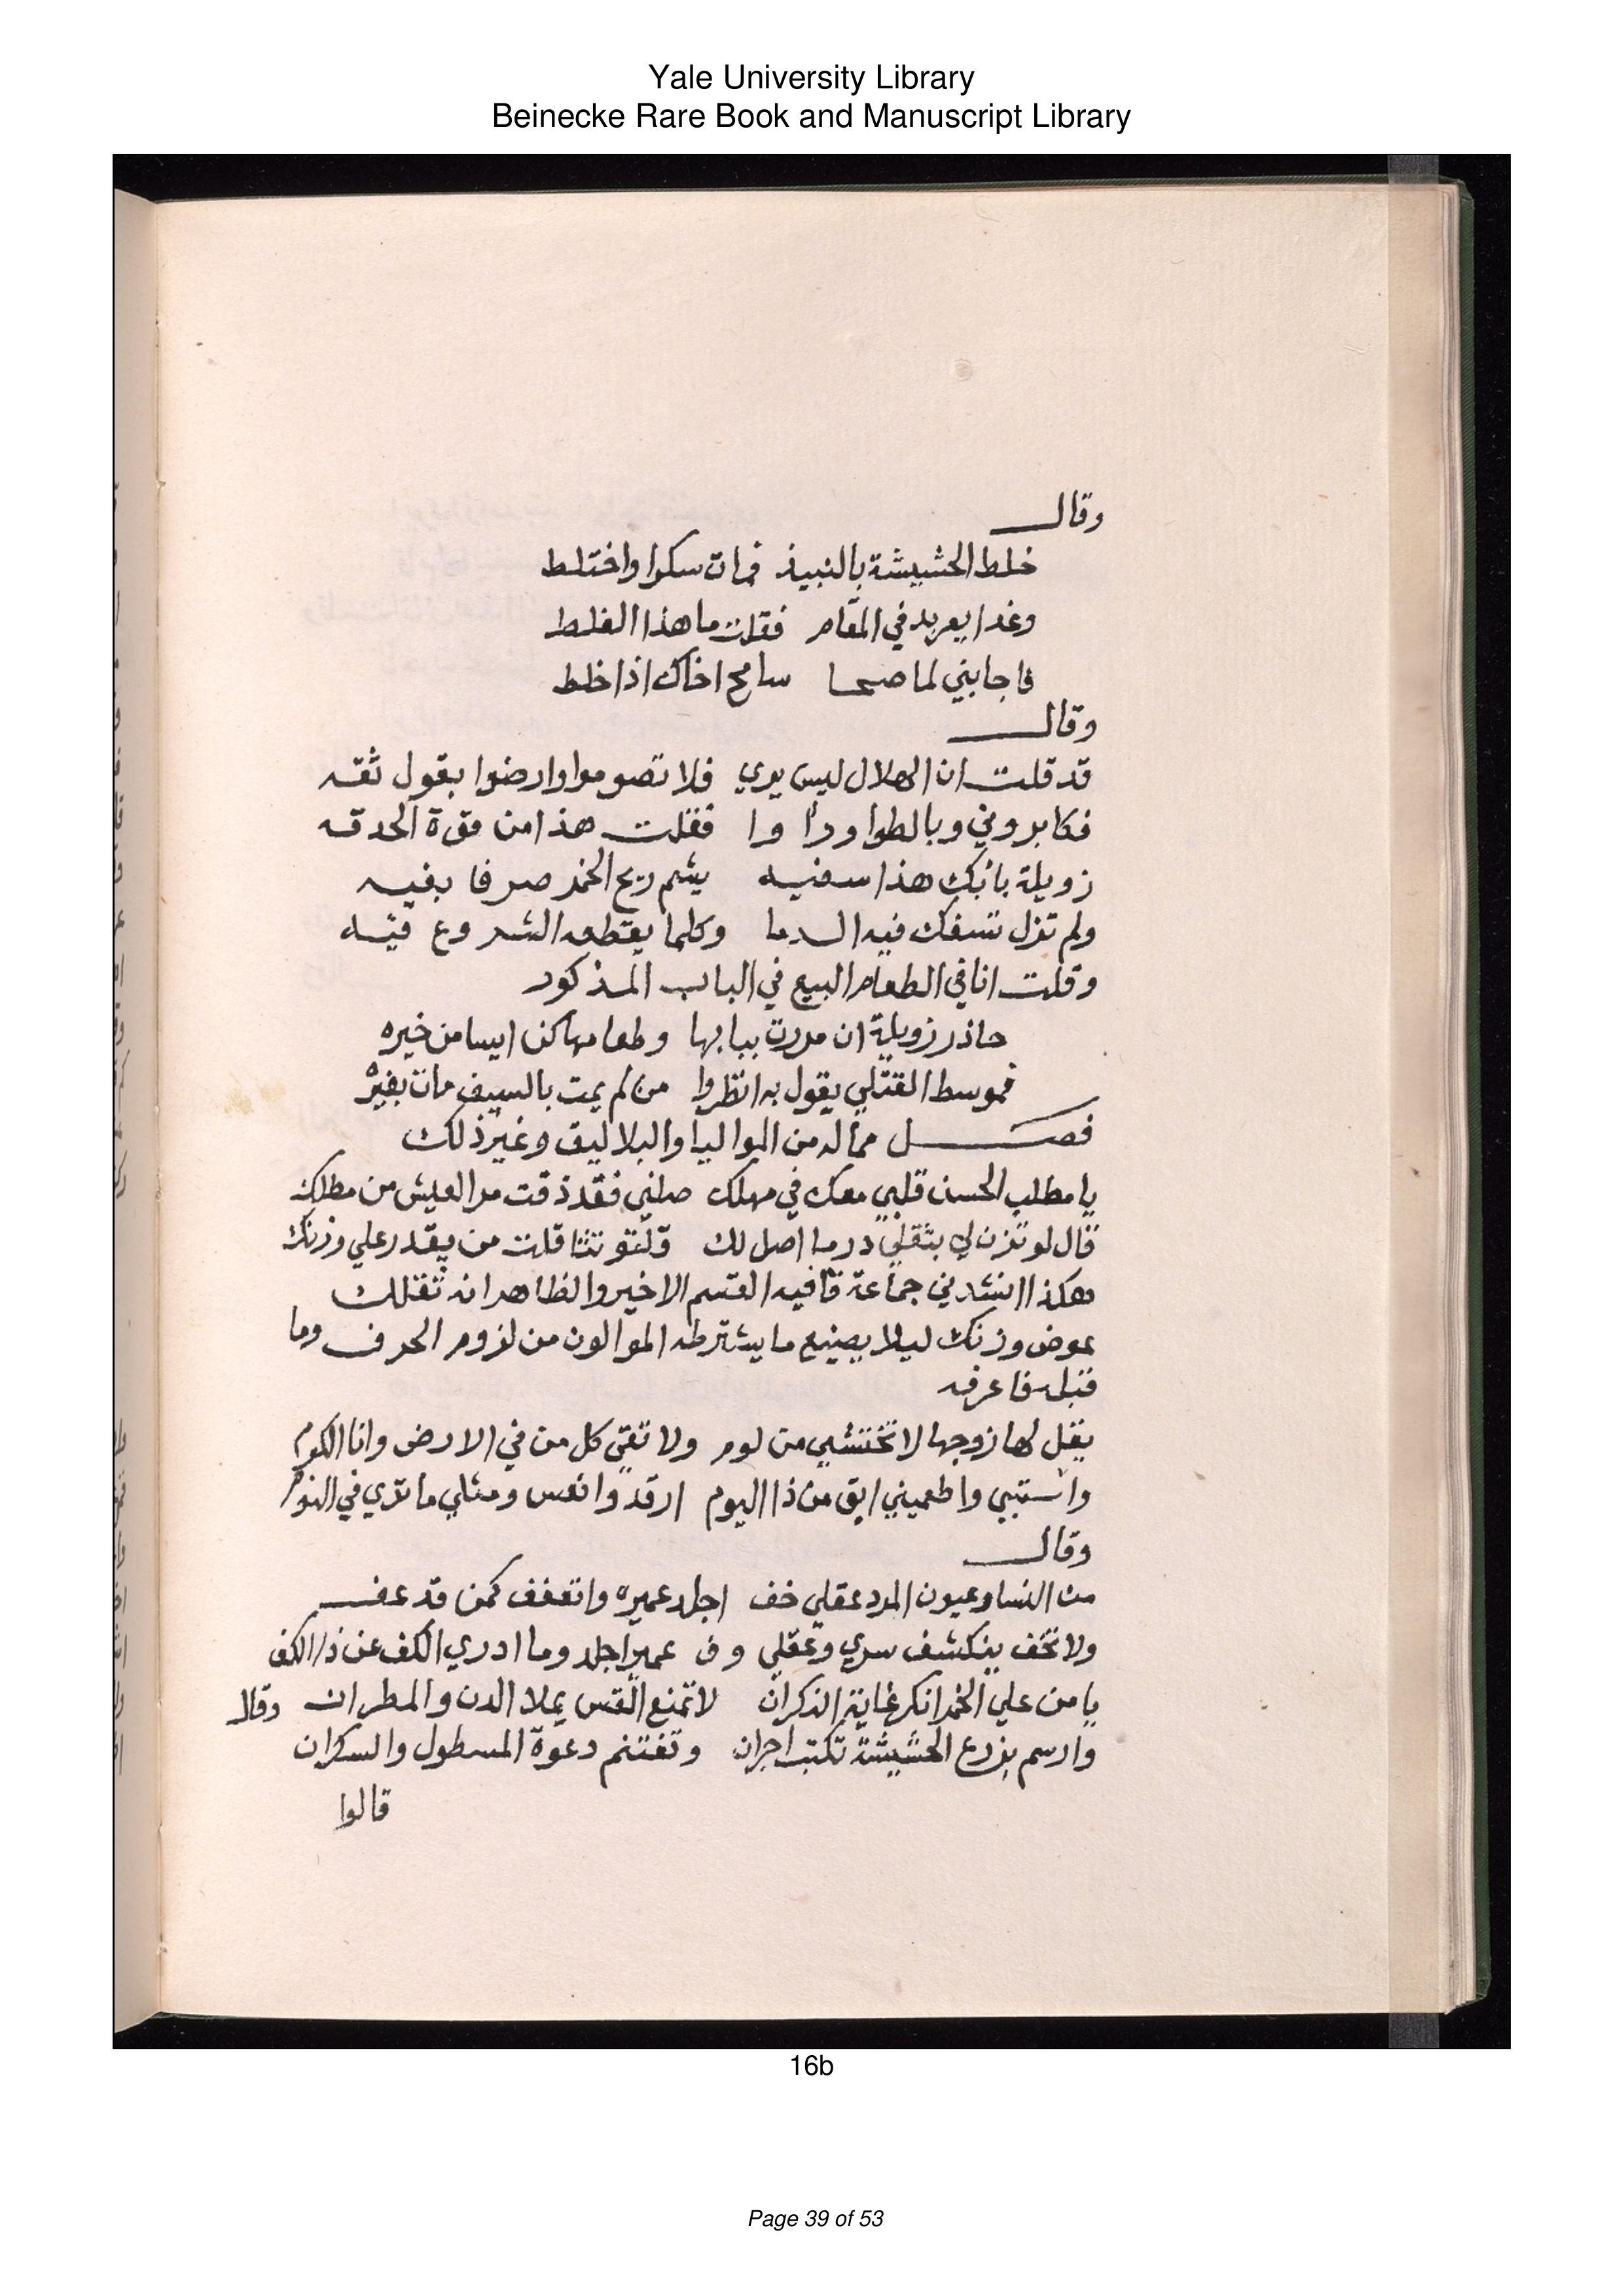 Yale University Library
Beinecke Rare Book and Manuscript Library
وقال
خلط الحشيشة بالنبيذ فمات سكرا واختلط
وغدا يعربد في المقام فقلت ما هذا الغلط
فاجابني لما صحا سامح اخاك اذا خلط
وقال
قد قلت ان الهلال ليس يري فلا تصوموا وارضوا بقول ثقه
فكابروني وبالطوا وراوا فقلت هذا من قوة الحدقه
زويلة بابك هذا سفيه يشم ريح الخمر صرفا بفيه
ولم تزل تسفك فيه الدما وكلما يقطعه الشروع فيه
وقلت انا في الطعام البيع في الباب المذكور
حاذر زويلة ان مررت ببابها وطعامها كن ايسا من خيره
فموسط القتلي يقول به انظروا من لم يمت بالسيف مات بغيره
فصل مما له من المواليا والبلاليق وغير ذلك
يا مطلب الحسن قلبي معك في مهلك صلني فقد ذقت مر العيش من مطلك
قال لو تزن لي بثقلي درما اصل لك قلتو تتثاقلت من يقدر علي وزنك
هكذا انشدني جماعة قافيه القسم الاخير والظاهر انه ثقلك
عوض وزنك ليلا يضيع ما يشترطه الموالون من لزوم الحرف وما
قبله فاعرفه
يقل لها زوجها لا تختشي من لوم ولا تقي كل من في الارض وانا الكوم
واستبي واطعميني ابق من ذا اليوم ارقد وانعس ومثلي ما تري في النوم
وقال
من النسا وعيون المرد عقلي خف اجلد عميره واتعفف كمن قد عف
ولا تخف ينكشف سري وعقلي وف عمير اجلد وما ادري الكف عن ذا الكف
يا من علي الخمر انكر غاية النكران لا تمنع القس يملا الدن والمطران وقال
وارسم بزرع الحشيشة تكتب اجران وتغتنم دعوة المسطول والسكران
قالوا
16b
Page 39 of 53